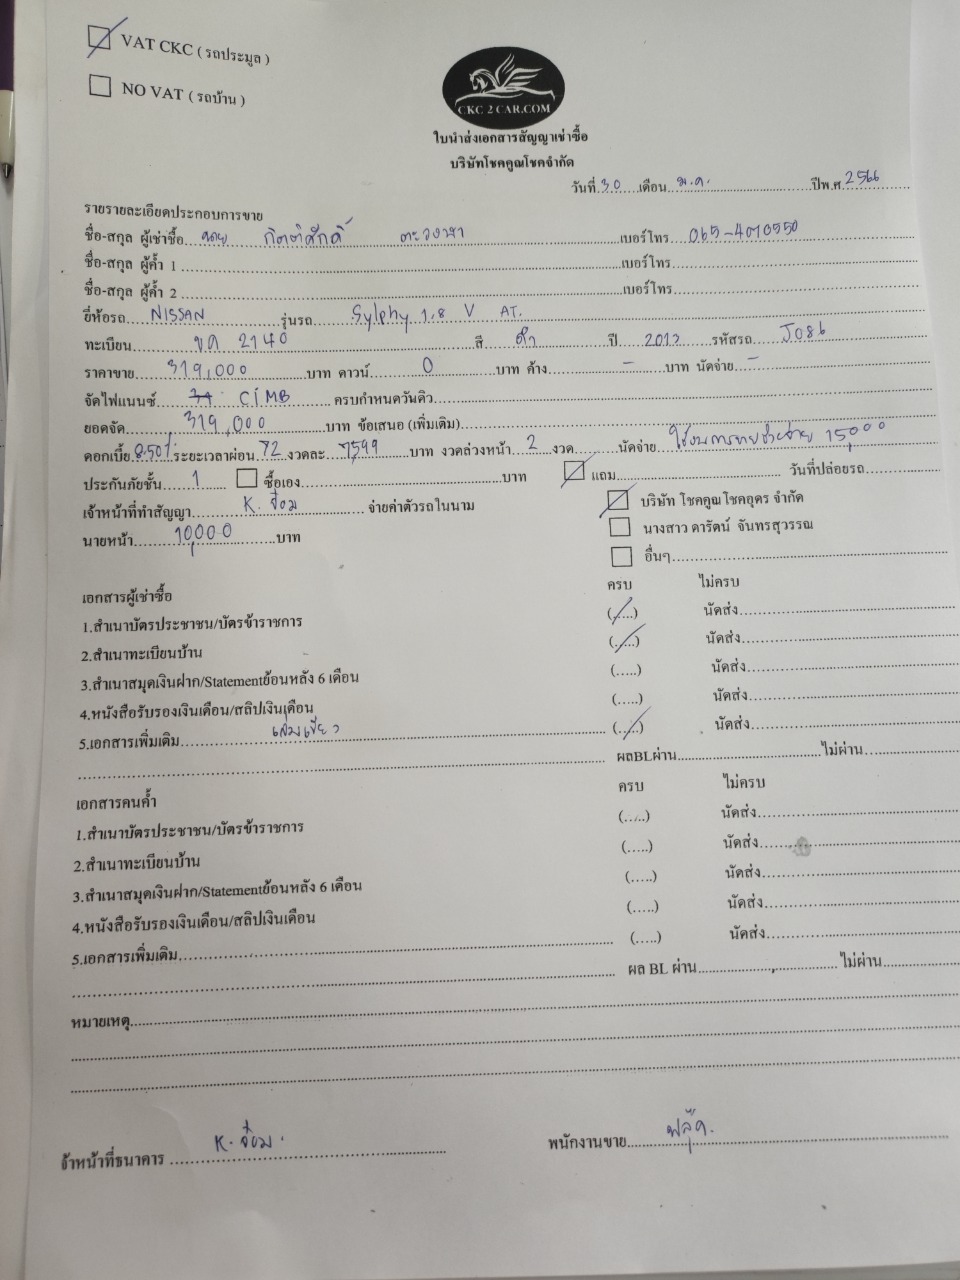 VAT CKC ( รถประมูล )
NO VAT ( รถบ้าน )
CKC 2 CAR.COM
ใบนำส่งเอกสารสัญญาเช่าซื้อ
บริษัทโชคคูณโชคจำกัด
วันที่.30....เดือน...พ.ค............ปีพ.ศ.2566
รายรายละเอียดประกอบการขาย
ชื่อ-สกุล ผู้เช่าซื้อ...นาย กิตติศักดิ์..........เบอร์โทร...065-4010550
ชื่อ-สกุล ผู้ค้ำ 1..........เบอร์โทร..........
ชื่อ-สกุล ผู้ค้ำ 2..........เบอร์โทร..........
ยี่ห้อรถ...NISSAN.......รุ่นรถ.....Sylphy 1.8 V AT.
ทะเบียน.......ขค 2140.......สี...ดำ.......ปี...2012.......รหัสรถ....J086
ราคาขาย....319,000.......บาท ดาวน์.....0.......บาท ค้าง.....-.....บาท นัดจ่าย..-
จัดไฟแนนซ์..... CIMB..... ครบกำหนดวันคิว..........
ยอดจัด......319,000.......บาท ข้อเสนอ (เพิ่มเติม)..........
ดอกเบี้ย.8.50%.ระยะเวลาผ่อน.72..งวดละ...7,599...บาท งวดล่วงหน้า...2...งวด.......นัดจ่าย... 15,000
ประกันภัยชั้น.....1..... ซื้อเอง..........บาท แถม.......... วันที่ปล่อยรถ..........
เจ้าหน้าที่ทำสัญญา.....K. จ๋อม....... จ่ายค่าตัวรถในนาม บริษัท โชคคูณโชคอุดร จำกัด
นางสาว ดารัตน์ จันทรสุวรรณ
นายหน้า.....10,000.......บาท
อื่นๆ..........
เอกสารผู้เช่าซื้อ ครบ ไม่ครบ
1.สำเนาบัตรประชาชน/บัตรข้าราชการ (./...) นัดส่ง..........
2.สำเนาทะเบียนบ้าน (./...) นัดส่ง..........
3.สำเนาสมุดเงินฝาก/Statementย้อนหลัง 6 เดือน (.....) นัดส่ง..........
4.หนังสือรับรองเงินเดือน/สลิปเงินเดือน (.....) นัดส่ง..........
5.เอกสารเพิ่มเติม.......เล่มเขียว.......... (./...) นัดส่ง..........
ผลBLผ่าน..........ไม่ผ่าน..........
เอกสารคนค้ำ ครบ ไม่ครบ
1.สำเนาบัตรประชาชน/บัตรข้าราชการ (.....) นัดส่ง..........
2.สำเนาทะเบียนบ้าน (.....) นัดส่ง..........
3.สำเนาสมุดเงินฝาก/Statementย้อนหลัง 6 เดือน (.....) นัดส่ง..........
4.หนังสือรับรองเงินเดือน/สลิปเงินเดือน (.....) นัดส่ง..........
5.เอกสารเพิ่มเติม.......... (.....) นัดส่ง..........
ผล BL ผ่าน.......... ไม่ผ่าน..........
หมายเหตุ..........
จ้าหน้าที่ธนาคาร .....K. จ๋อม........ พนักงานขาย..........